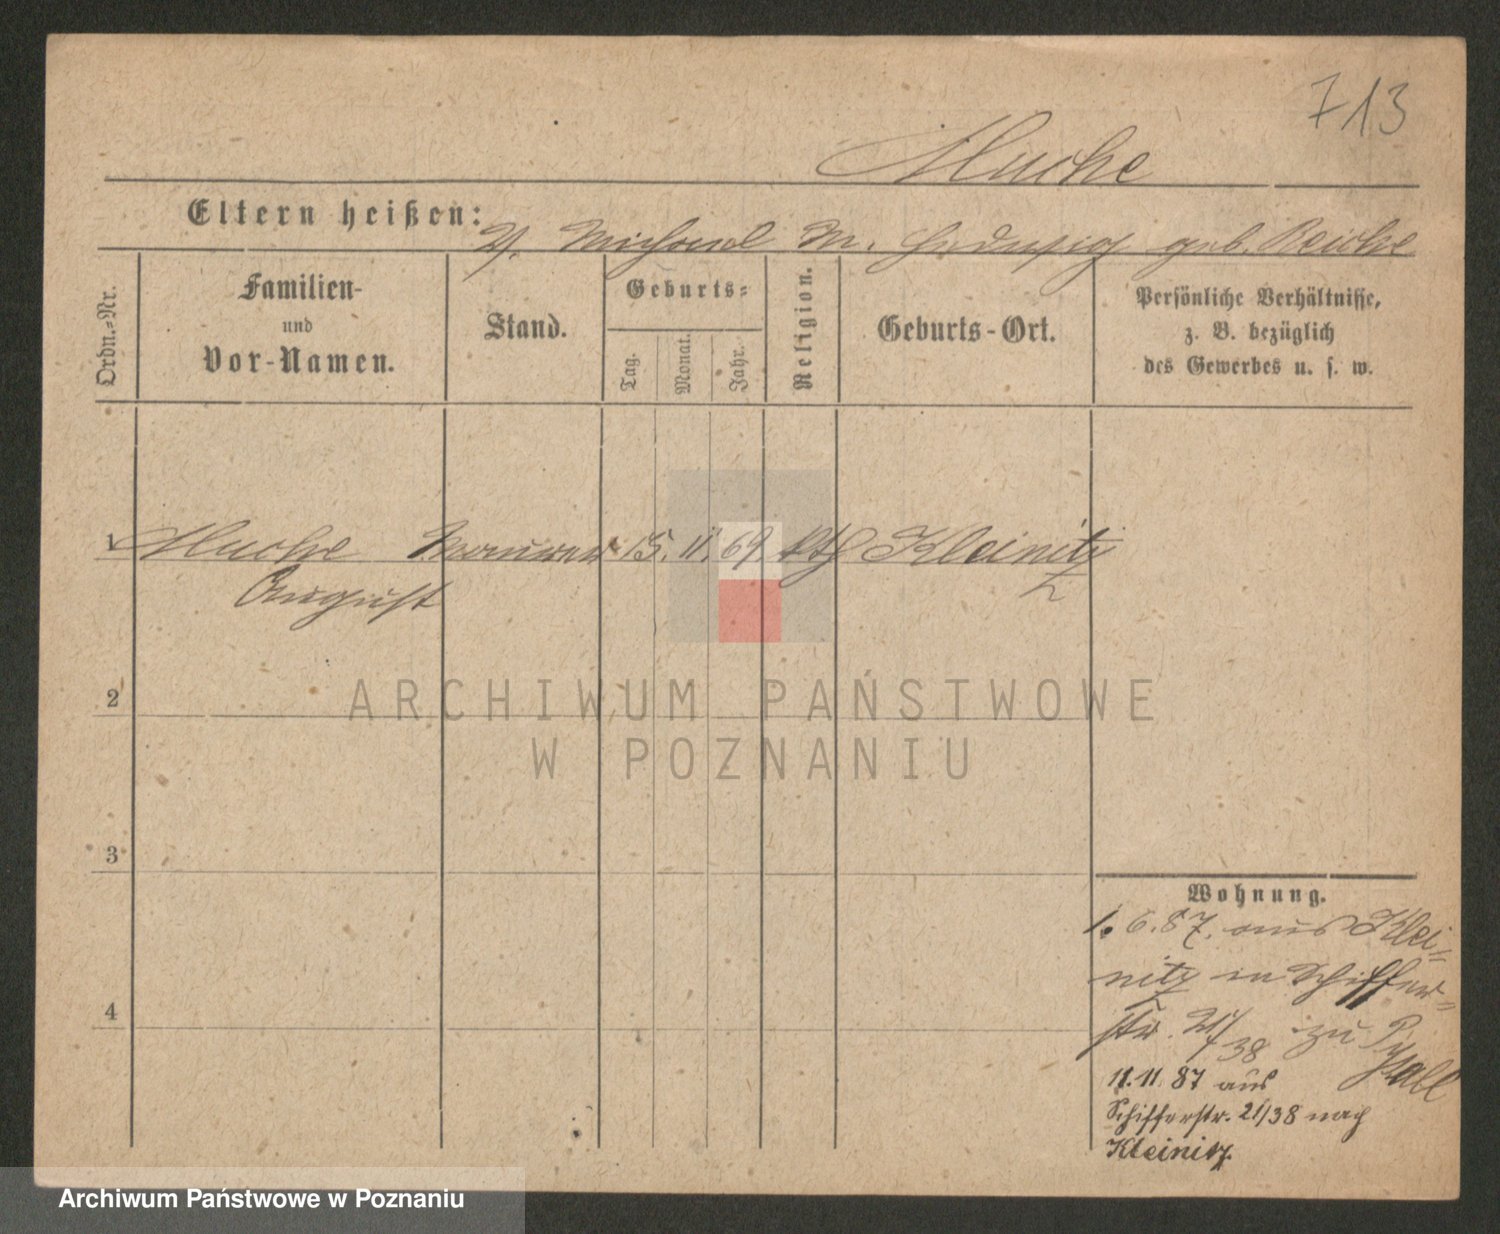 713
Muche
Eltern heißen:
V. Michael M. Hedwig geb. Reiche
Ordn.-Nr.
Familien-
und
Vor-Namen.
Stand.
Geburts-
Tag.
Monat.
Jahr.
Religion.
Geburts-Ort.
Persönliche Verhältnisse,
z. B. bezüglich
des Gewerbes u. s. w.
1 Muche Maurer 15. 11. 69. kth Kleinitz
August
2
ARCHIWUM PAŃSTWOWE
W POZNANIU
3
4
Wohnung.
1. 6. 87. aus Klei-
nitz in Schiffer-
str. 21/38 zu
11. 11. 87 aus
Schifferstr. 21/38 nach
Kleinitz.
Archiwum Państwowe w Poznaniu